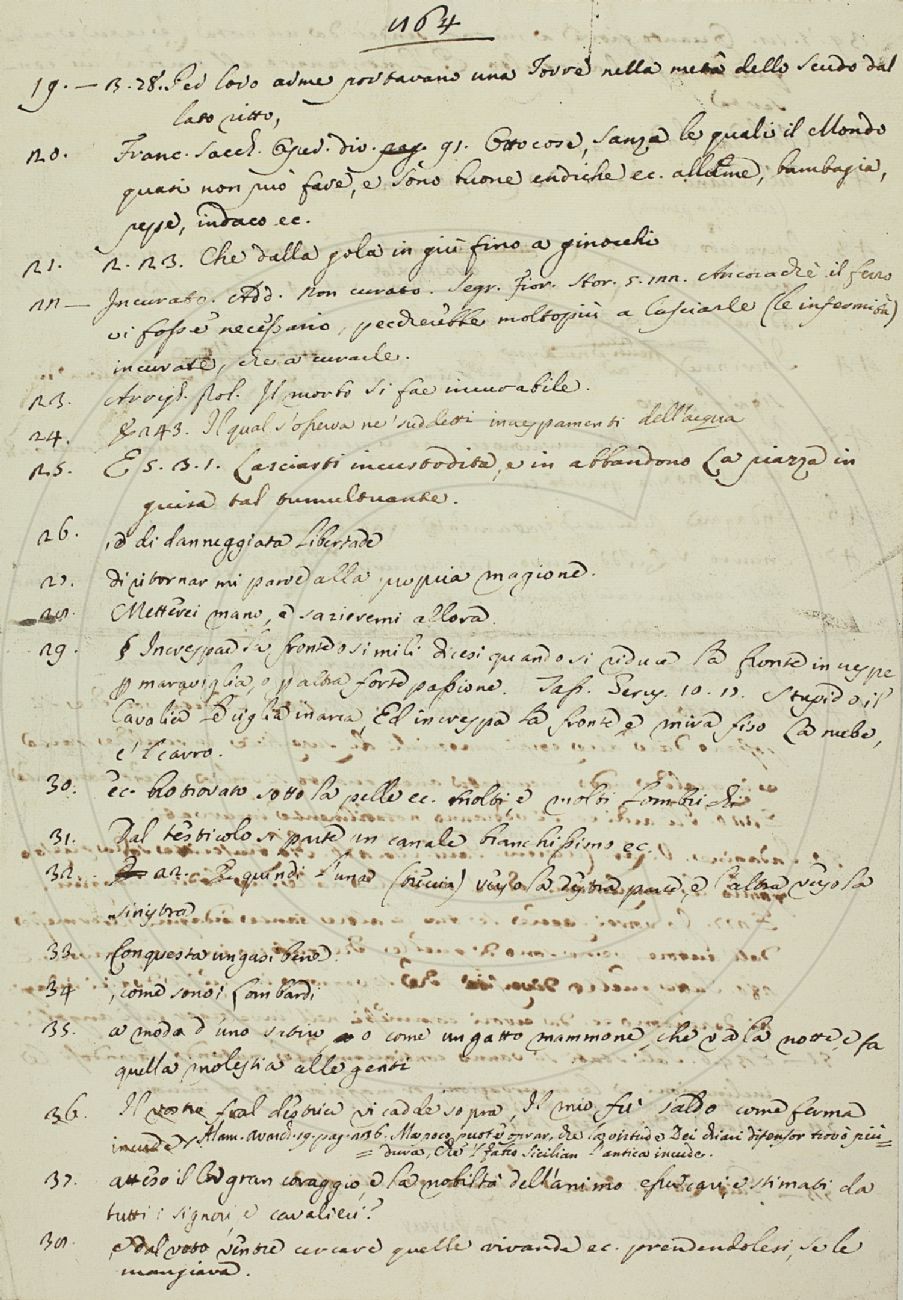 1164
19. — 3. 28. Per loro arme portavano una Torre nella metà dello Scudo dal
lato ritto,
20. Franc. Sacch. Op. div. 91. Otto cose, sanza le quali il Mondo
quasi non può fare, e sono buone endiche ec. allume, bambagia,
pepe, indaco ec.
21. 2. 23. Che dalla gola in giù fino a ginocchi
22 — Incurato. Add. Non curato. Segr. Fior. Stor. 5. 122. Ancorachè il ferro
vi fosse necessario, peccherebbe moltopiù a lasciarle (le infermità)
incurate, che a curarle.
23. Il morbo si fae incurabile.
24. 243. Il qual s'osserva ne' suddetti increspamenti dell'acqua
25. E 5. 3. 1. Lasciasti incustodita, e in abbandono La piazza in
guisa tal tumultuante.
26. di danneggiata libertade
27. di ritornar mi parve alla propria magione.
28. Mettérci mano, e sazieremi allora
29. § Increspare la fronte o simili dicesi quando si riduce la fronte in crespe
p maraviglia, o p altra forte passione. Tass. Gerus. 10. 17. Stupido il
Cavalier le ciglia inarca, Ed increspa la fronte e mira fiso La nube,
e 'l carro.
30. ec. ho trovato sotto la pelle ec. molti e molti lombrichi
31. Dal testicolo si parte un canale bianchissimo ec.
32. 22. E quindi l'una (briccia) verso la destra parte, e l'altra verso la
sinistra
33. Con questa ungasi bene
34 , come sono i Lombardi
35. a modo d'uno o come un gatto mammone, che va la notte, e fa
quella molestia alle genti
36. Il vostre fral destrier vi cadde sopra, Il mio fu saldo come ferma
incude / Alam. Avarch. 19. pag. 236. Ma poco puote oprar, che la virtude Dei chiari difensor trovò più =
= dura, che 'l fatto Sicilian l'antica incude.
37. atteso il lor gran coraggio, e la nobiltà dell'animo e fur cari, e stimati da
tutti i signori e cavalieri?
38. e dal voto ventre cercare quelle vivande ec. prendendolesi, se le
mangiava.